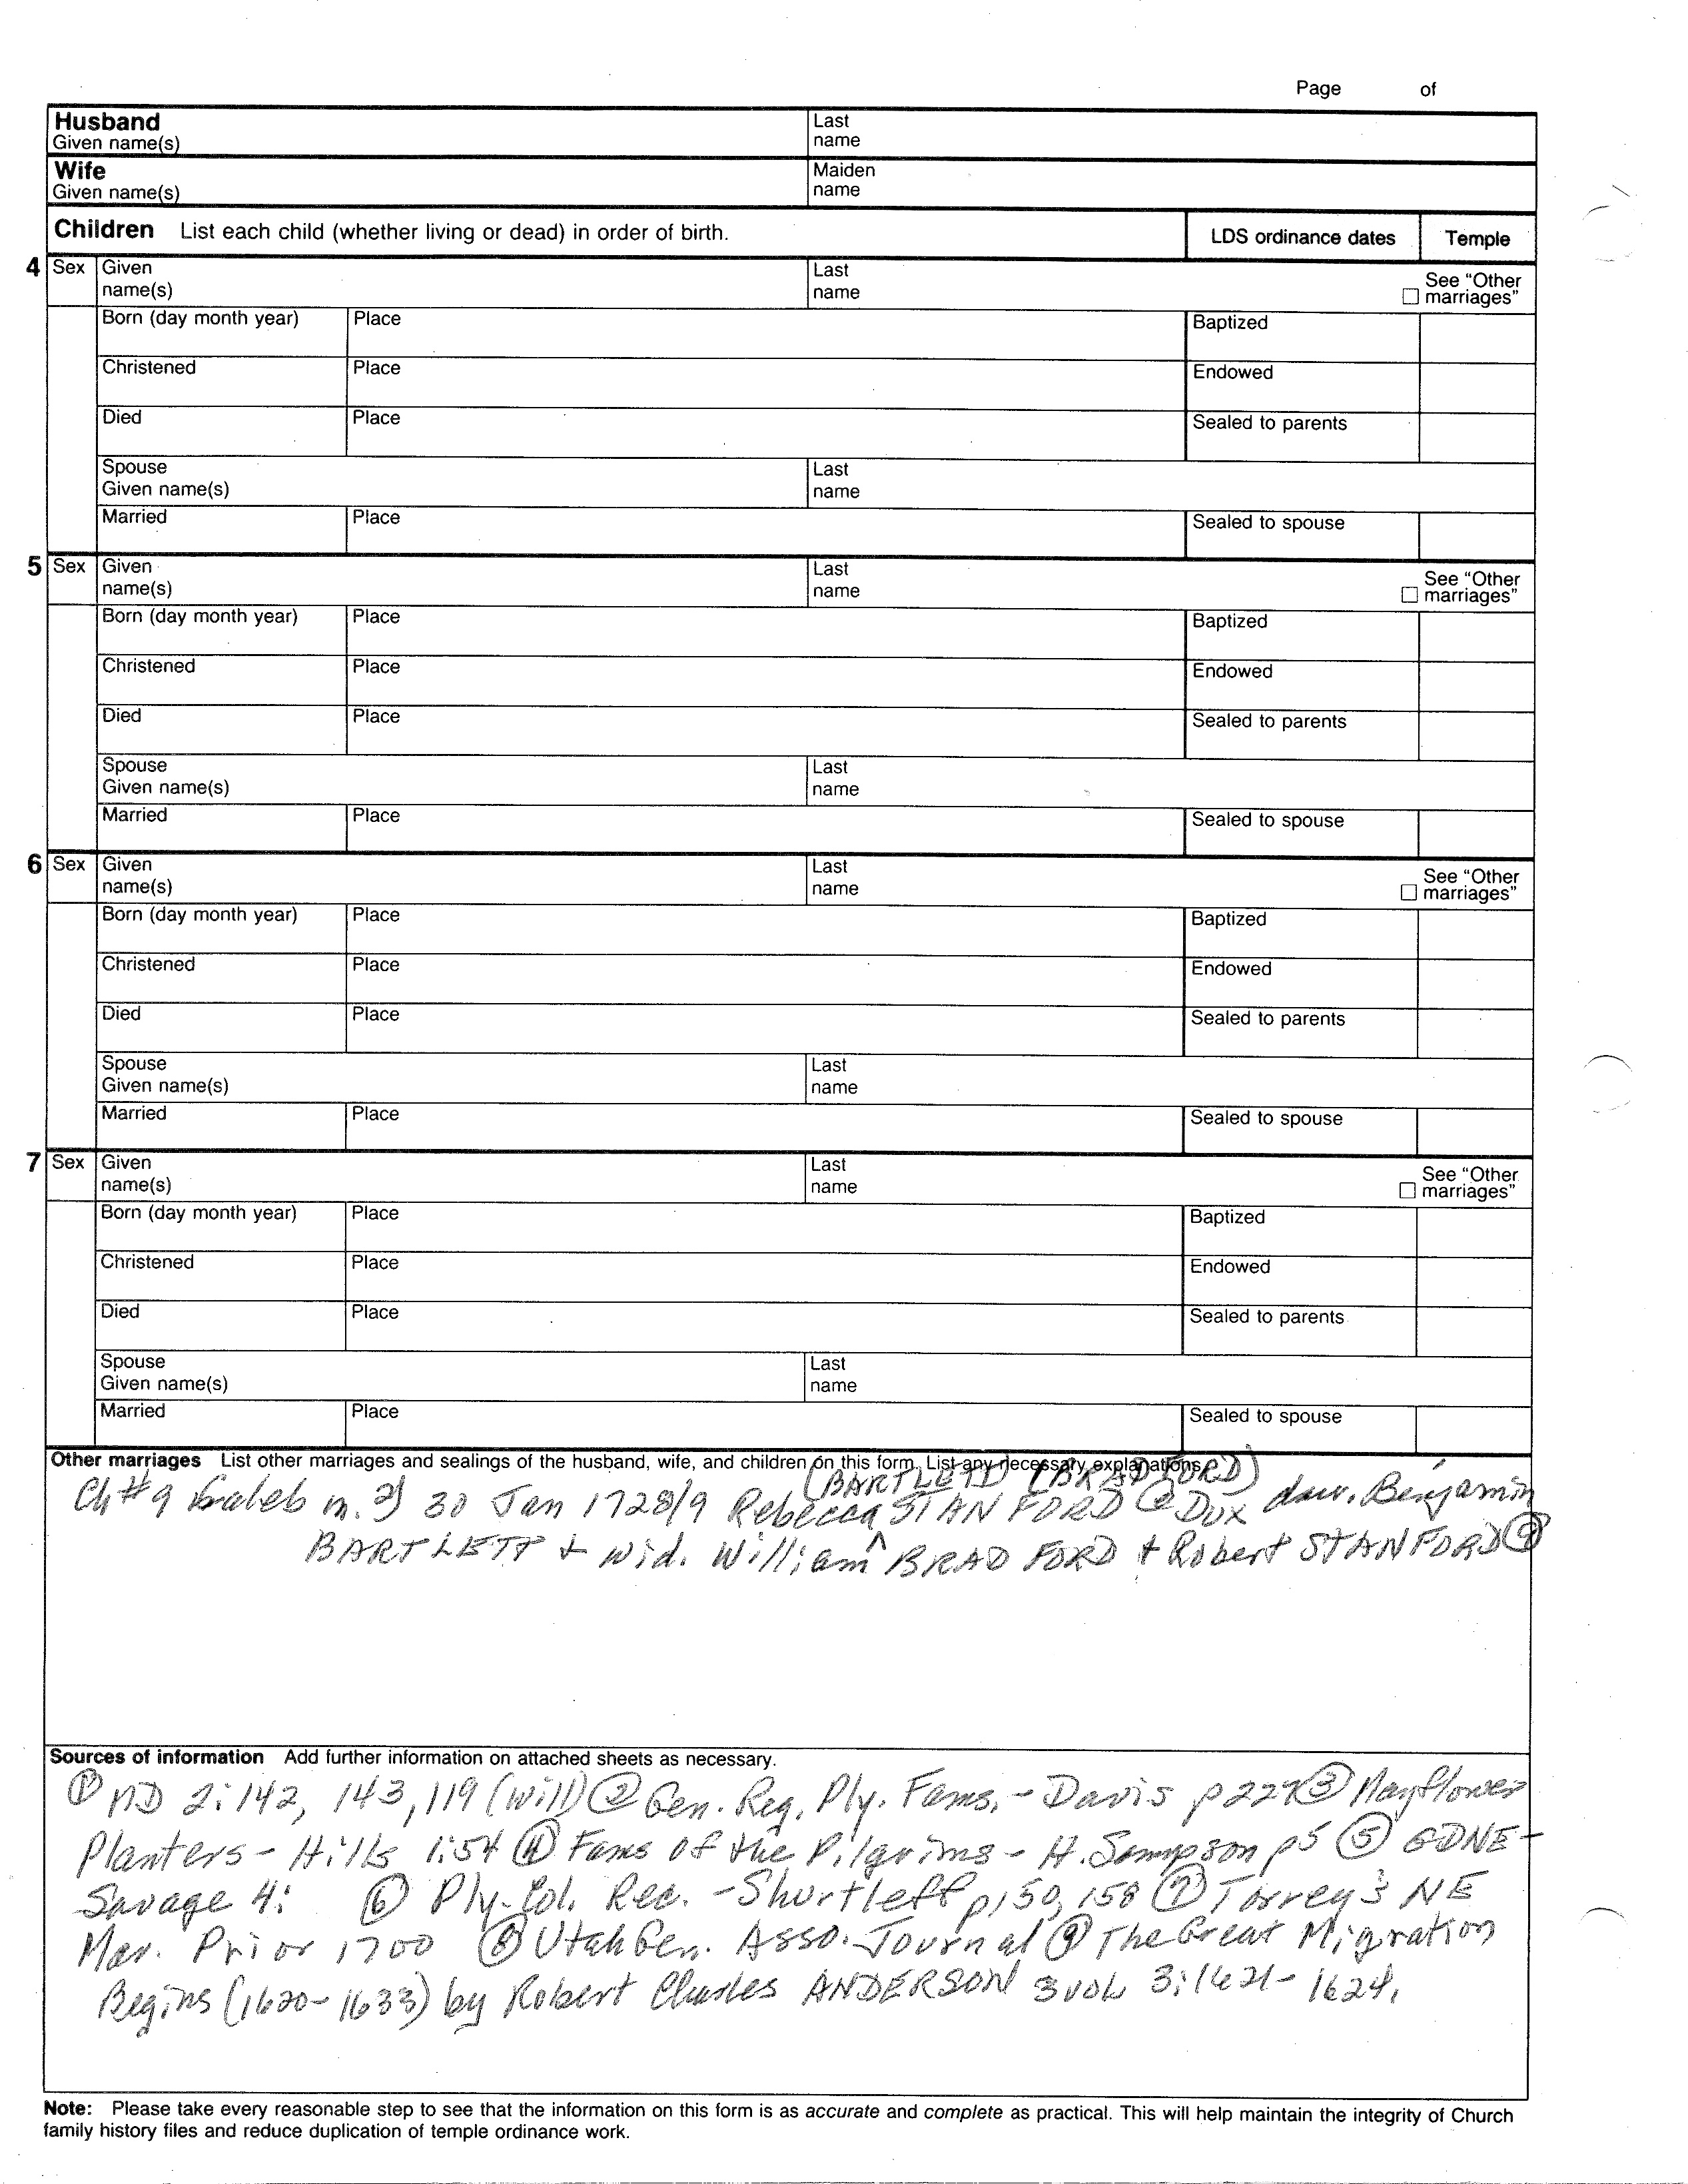 Page of
Husband
Given name(s)
Last
name
Wife
Given name(s)
Maiden
name
Children List each child (whether living or dead) in order of birth.
LDS ordinance dates
Temple
4 Sex
Given
name(s)
Last
name
See "Other
marriages"
Born (day month year)
Place
Baptized
Christened
Place
Endowed
Died
Place
Sealed to parents
Spouse
Given name(s)
Last
name
Married
Place
Sealed to spouse
5 Sex
Given
name(s)
Last
name
See "Other
marriages"
Born (day month year)
Place
Baptized
Christened
Place
Endowed
Died
Place
Sealed to parents
Spouse
Given name(s)
Last
name
Married
Place
Sealed to spouse
6 Sex
Given
name(s)
Last
name
See "Other
marriages"
Born (day month year)
Place
Baptized
Christened
Place
Endowed
Died
Place
Sealed to parents
Spouse
Given name(s)
Last
name
Married
Place
Sealed to spouse
7 Sex
Given
name(s)
Last
name
See "Other
marriages"
Born (day month year)
Place
Baptized
Christened
Place
Endowed
Died
Place
Sealed to parents
Spouse
Given name(s)
Last
name
Married
Place
Sealed to spouse
Other marriages List other marriages and sealings of the husband, wife, and children on this form. List any necessary explanations.
(BARTLETT) (BRADFORD)
Ch #9 Caleb m. 2) 30 Jan 1728/9 Rebecca STANFORD @ Dux dau. Benjamin
BARTLETT + wid. William ^ BRADFORD + Robert STANFORD
Sources of information Add further information on attached sheets as necessary.
① MD 2:142, 143, 119 (Will) ② Gen. Reg. Ply. Fams. - Davis p 227 ③ Mayflower
Planters - Hills 1:54 ④ Fams of the Pilgrims - H. Sampson p5 ⑤ GDNE -
Savage 4: ⑥ Ply. Col. Rec. - Shurtleff p150, 158 ⑦ Torrey's NE
Mar. Prior 1700 ⑧ Utah Gen. Asso. Journal ⑨ The Great Migration
Begins (1620-1633) by Robert Charles ANDERSON 3 vol 3:1621-1624.
Note: Please take every reasonable step to see that the information on this form is as accurate and complete as practical. This will help maintain the integrity of Church
family history files and reduce duplication of temple ordinance work.